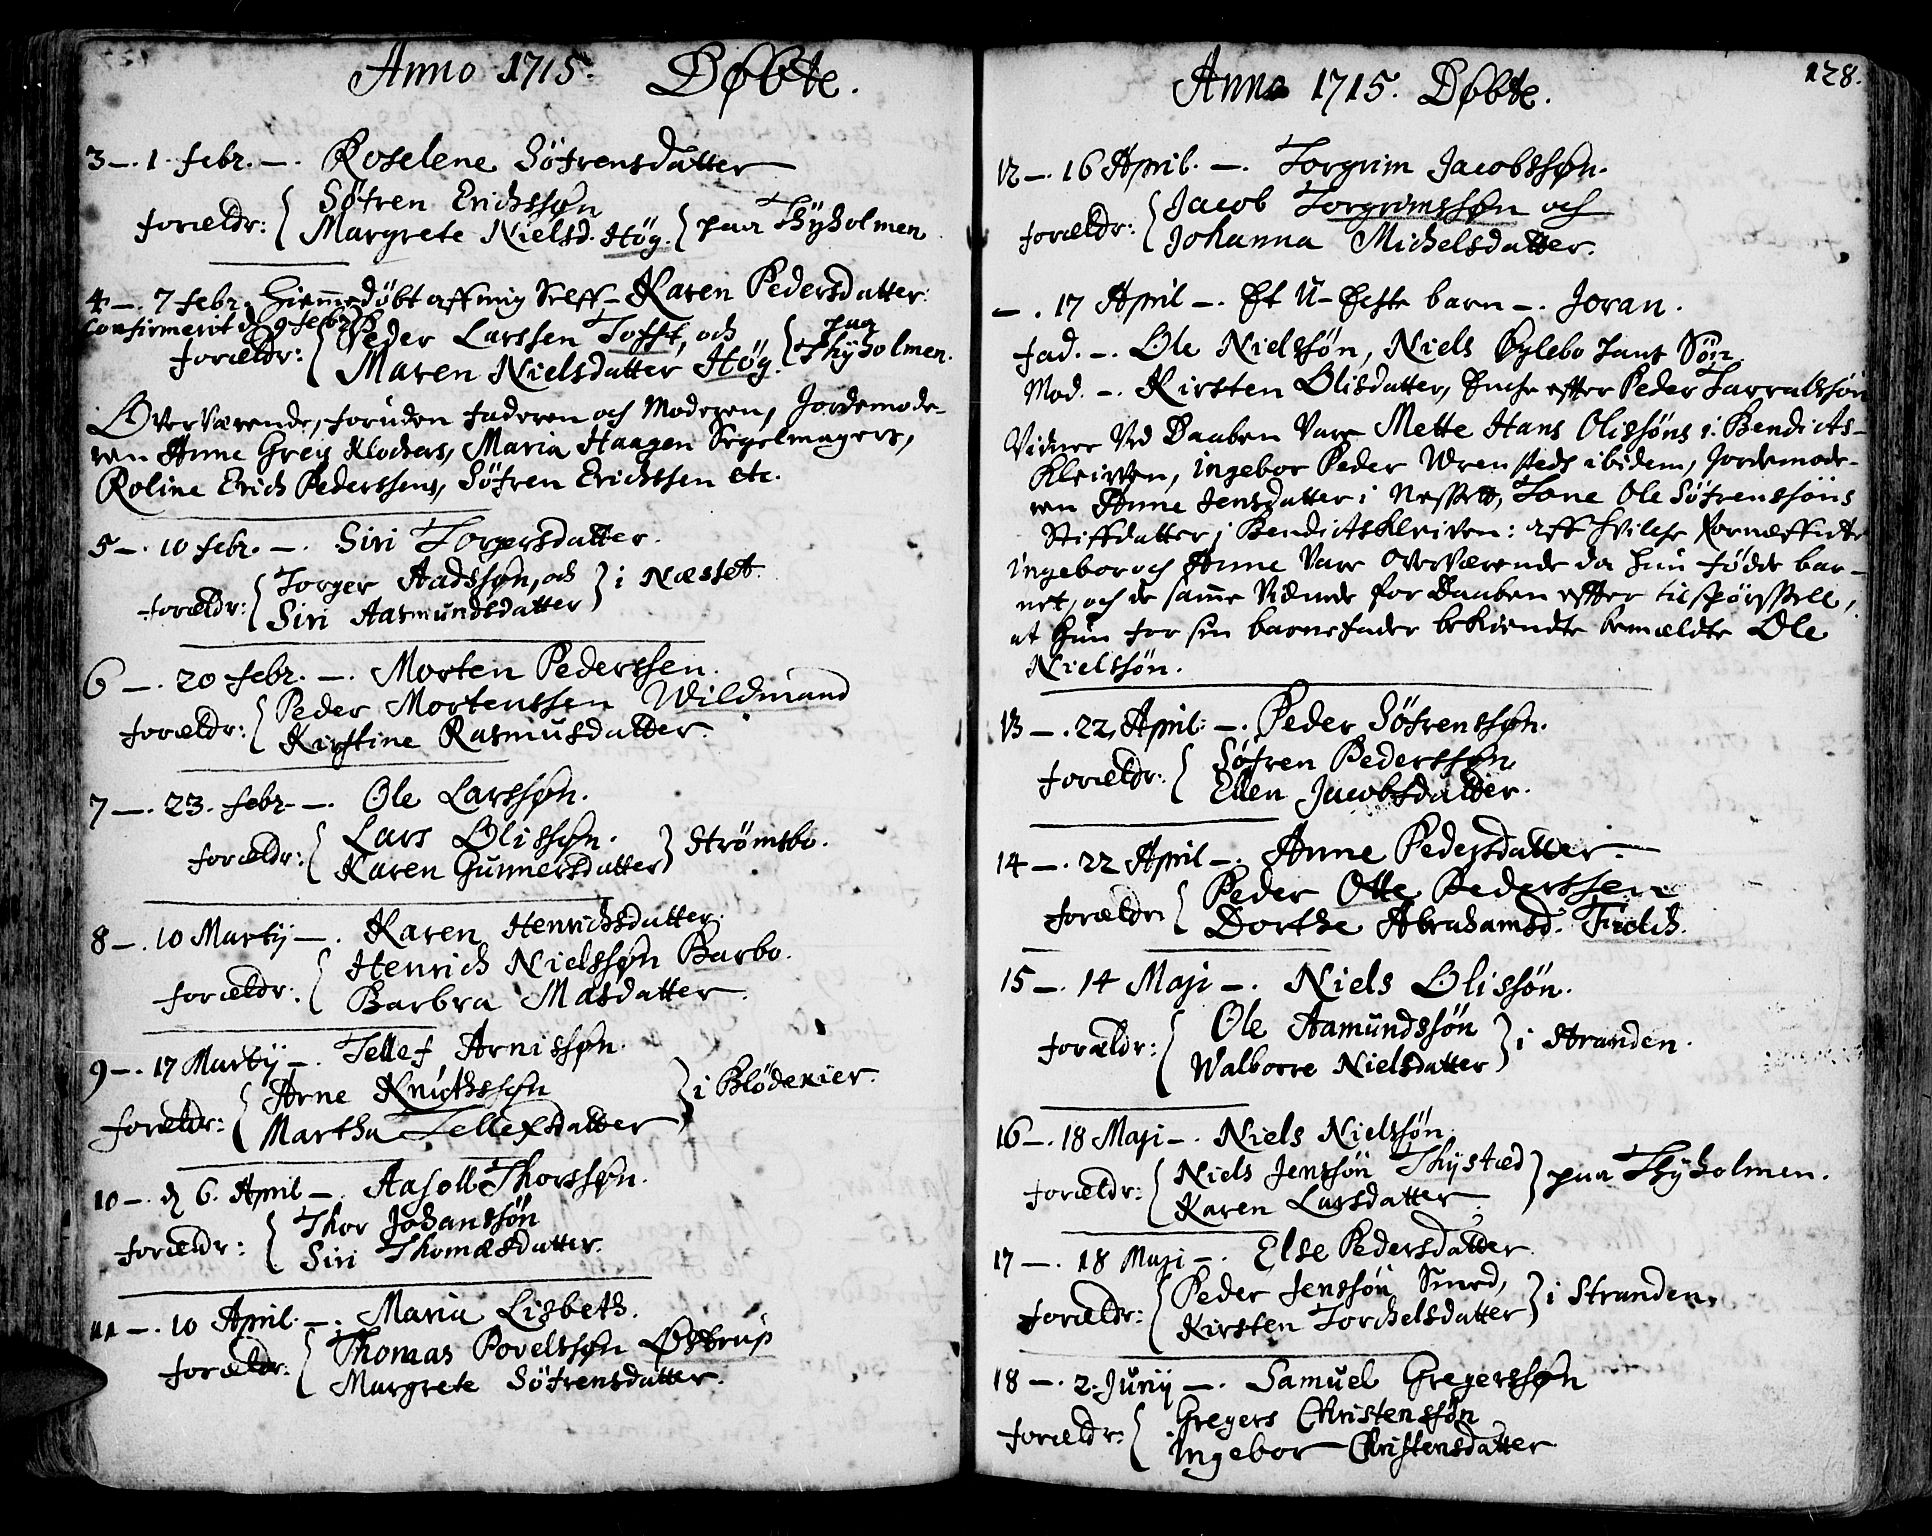 Anno 1715. Døbte.
3 —. 1. febr. —. Roselene Söfrensdatter
foreldr: Söfren Erichssøn
Margrete Nielsd. Høg. paa Thÿholmen
4 —. 7 febr. Hiemedøbt aff mig Selff — Karen Pedersdatter.
Confirmerit d. 9 febr.
foreldr: Peder Larssen Tofft, och
Maren Nielsdatter Høg. paa Thÿholmen.
Overværende, foruden faderen och Moderen, Jordemode-
ren Anne Greg Klockers, Maria Haagen Segelmagers,
Roline Erich Pederssens, Söfren Erichssen etc.
5 —. 10 febr. —. Siri Torgersdatter.
foreldr: Torger Aadssøn, och
Siri Aasmundsdatter i Næsset.
6 —. 20 febr. —. Morten Pederssen.
foreldr: Peder Mortenssen Wildmand
Kirstine Rasmusdatter.
7 —. 23. febr —. Ole Larssøn.
foreldr: Lars Olissøn.
Karen Gunnersdatter Strömsbo.
8 —. 10 Martij —. Karen Henrichsdatter.
foreldr. Henrich Nielssøn Barbo.
Barbra Masdatter.
9 —. 17 Martij —. Tellef Arnissøn.
foreldr: Arne Knuthssøn
Martha Tellefsdatter i Blödekier.
10 —. d 6. April —. Aasoll Thorssøn.
foreldr: Thor Johanssøn
Siri Thomæsdatter.
11 —. 10 April. —. Maria Lisbeth.
foreldr: Thomas Povelssøn Østrup
Margrete Söfrensdatter.
128.
Anno 1715. Døbte.
12 —. 16 April. —. Torgrim Jacobssøn.
foreldr: Jacob Torgrimssøn och
Johanna Michelsdatter.
—. 17 April —. Et U-Echte barn —. Joran.
fad. —. Ole Nielssøn, Niels Øylebo hans Søn.
Mod. —. Kirsten Olisdatter, Enche effter Peder Tarralssøn
Vidner Ved Daaben Vare Mette Hans Olissøns i Bendicts-
Kleiven, ingebor Peder Wrensteds ibidem, Jordemode-
ren Anne Jensdatter i Nesset, Tone Ole Söfrenssøns
Stiffdatter i Bendictskleiven: aff hvilche
ingebor och Anne Vare Overværende da hun fødde bar-
net, och de samme Vidnede for Daaben effter tilspørssell,
at hun for sin barnefader bekiendte bemældte Ole
Nielssøn.
13 —. 22. April: —. Peder Söfrenssøn.
foreldr: Söfren Pederssøn
Ellen Jacobsdatter.
14 —. 22 April —. Anne Pedersdatter.
foreldr: Peder Otte Pederssen
Dorthe Abrahamsd.
15 —. 14 Maji —. Niels Olissøn.
foreldr: Ole Aamundssøn
Walborre Nielsdatter i Stranden.
16 —. 18 Maji —. Niels Nielssøn.
foreldr: Niels Jenssøn Thystæd
Karen Larsdatter paa Thÿholmen.
17 —. 18 Maji —. Else Pedersdatter
foreldr: Peder Jenssøn Smed,
Kirsten Torchelsdatter i Stranden.
18 —. 2. Junij —. Samuel Gregerssøn
foreldr: Gregers Christenssøn
Ingebor Christensdatter